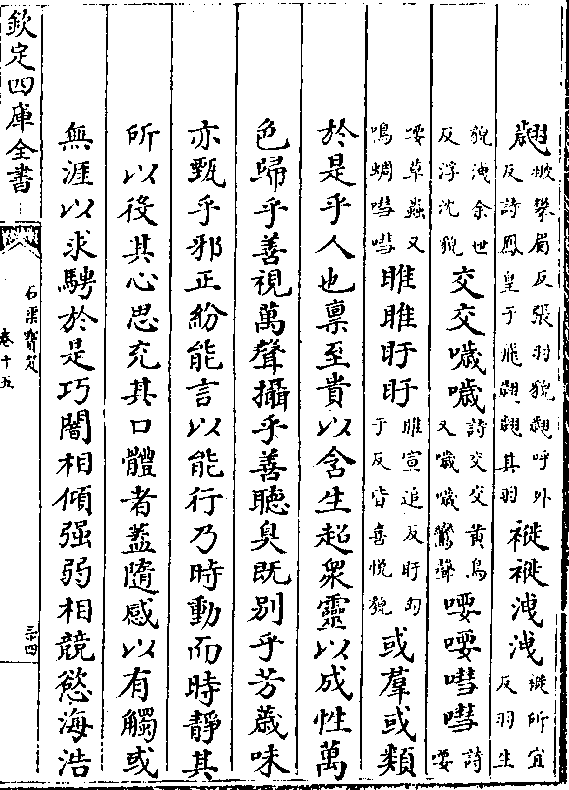 翽披攀眉反張羽貌翽呼外反詩鳳皇于飛翽翽其羽褷褷洩洩褷所宜反羽生
貌洩余世反浮沈貌交交噦噦詩交交黄鳥又噦噦鸞聲喓喓嘒嘒詩喓
喓草蟲又鳴蜩嘒嘒睢睢盱盱睢宣追反盱匈于反皆喜悅貌或羣或類
於是乎人也禀至貴以含生超衆靈以成性萬
色歸乎善視萬聲攝乎善聽臭既别乎芳薉味
亦甄乎邪正紛能言以能行乃時動而時靜其
所以役其心思充其口體者蓋隨感以有觸或
無涯以求騁於是巧闇相傾强弱相競慾海浩
欽定四庫全書
石渠寳笈
卷十五
三四